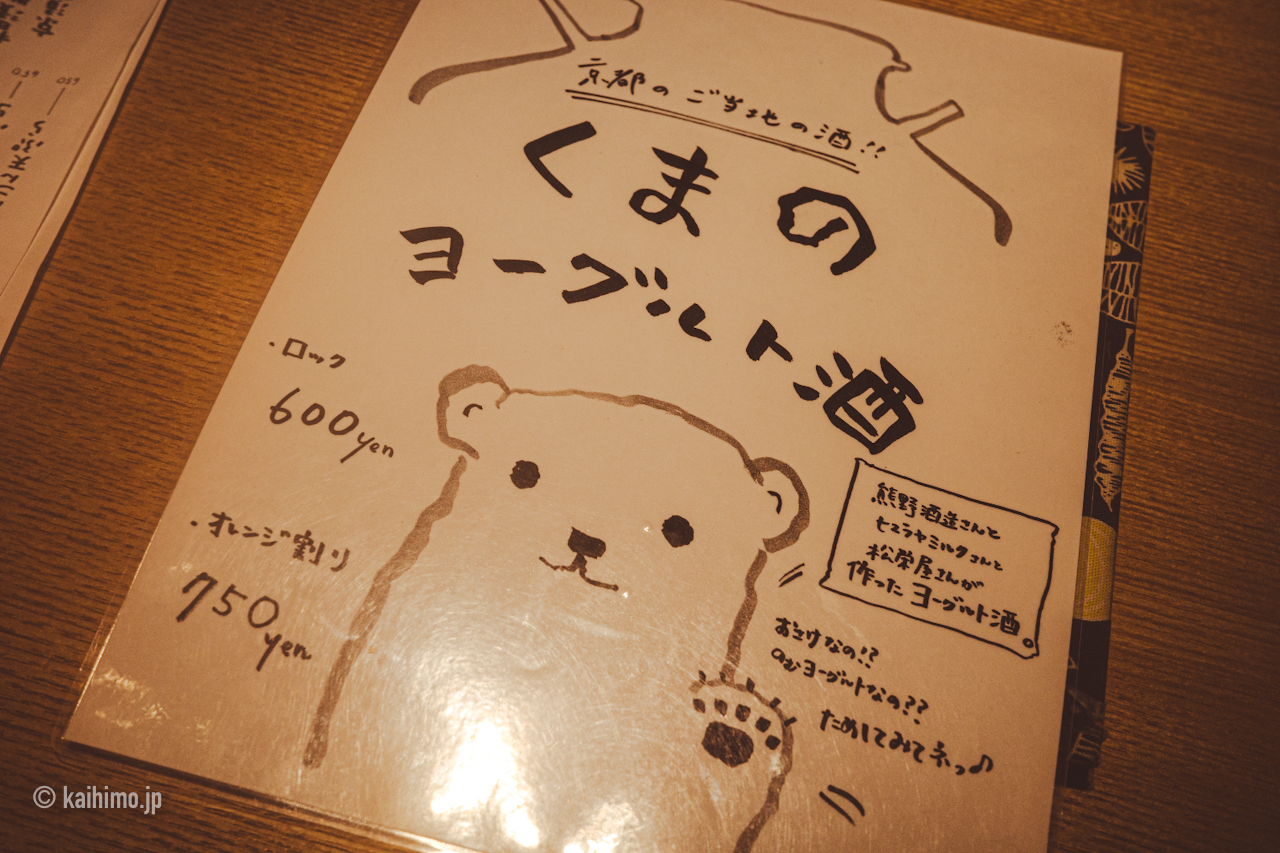 京都のご当地の酒!!
くまの
ヨーグルト酒
・ロック
600yen
・オレンジ割り
750yen
熊野酒造さんと
ヒマラヤミルクさんと
松栄屋さんが
作ったヨーグルト酒。
おさけなの!?
のむヨーグルトなの??
ためしてみてネっ♪
天ぷら
© kaihimo.jp